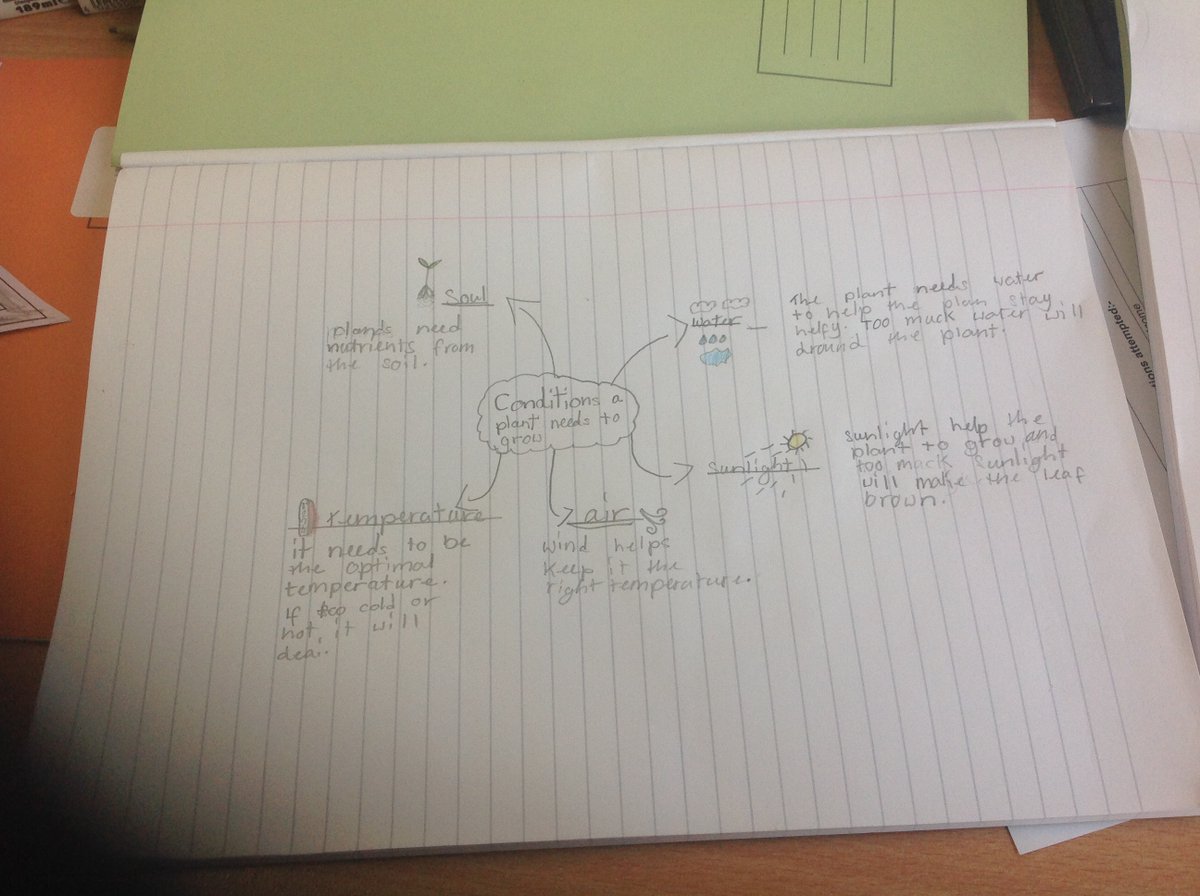 189ml
Conditions a
plant needs to
grow
Soul
plands need
nutrients from
the soil.
water
The plant needs water
to help the plan stay
helfy. Too muck water will
dround the plant.
sunlight
sunlight help the
plant to grow, and
too muck sunlight
will make the leaf
brown.
air
wind helps
keep it the
right temperature.
temperature
it needs to be
the optimal
temperature.
if too cold or
hot, it will
deai.
tions attempted: